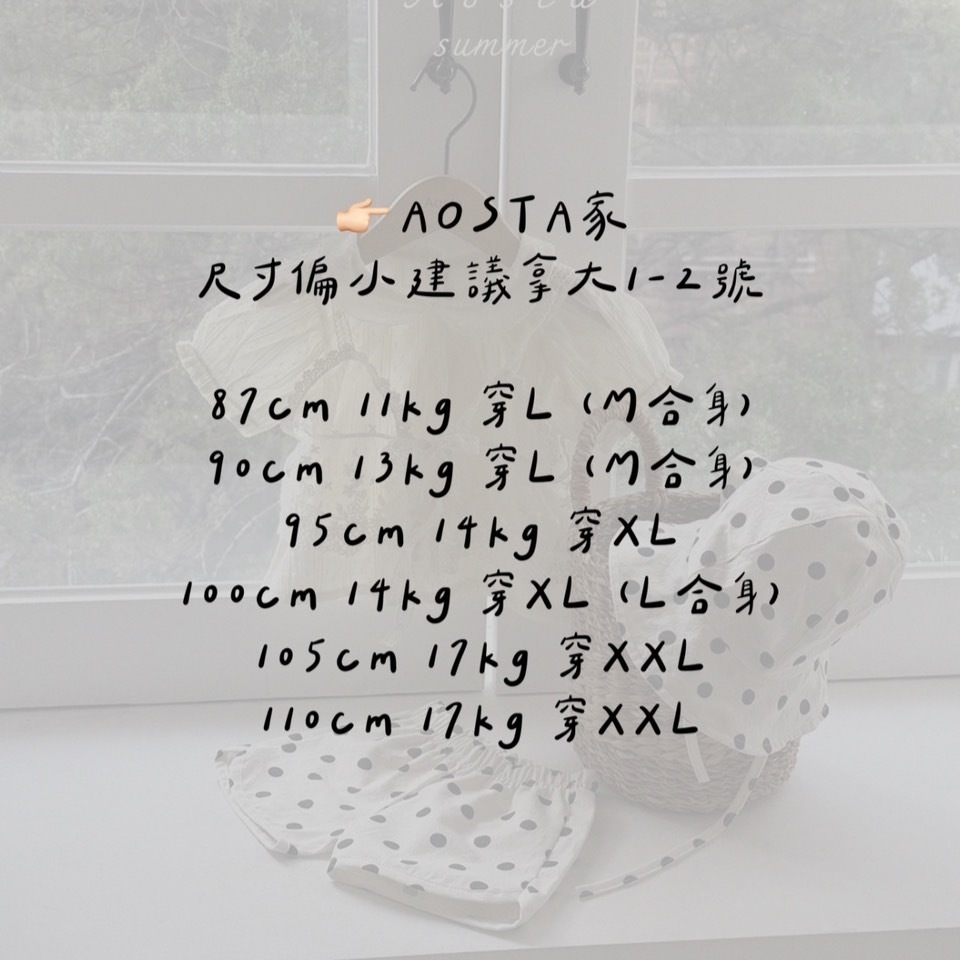 Aosta
summer
👉🏻 AOSTA家
尺寸偏小建議拿大1-2號
87cm 11kg 穿L (M合身)
90cm 13kg 穿L (M合身)
95cm 14kg 穿XL
100cm 14kg 穿XL (L合身)
105cm 17kg 穿XXL
110cm 17kg 穿XXL